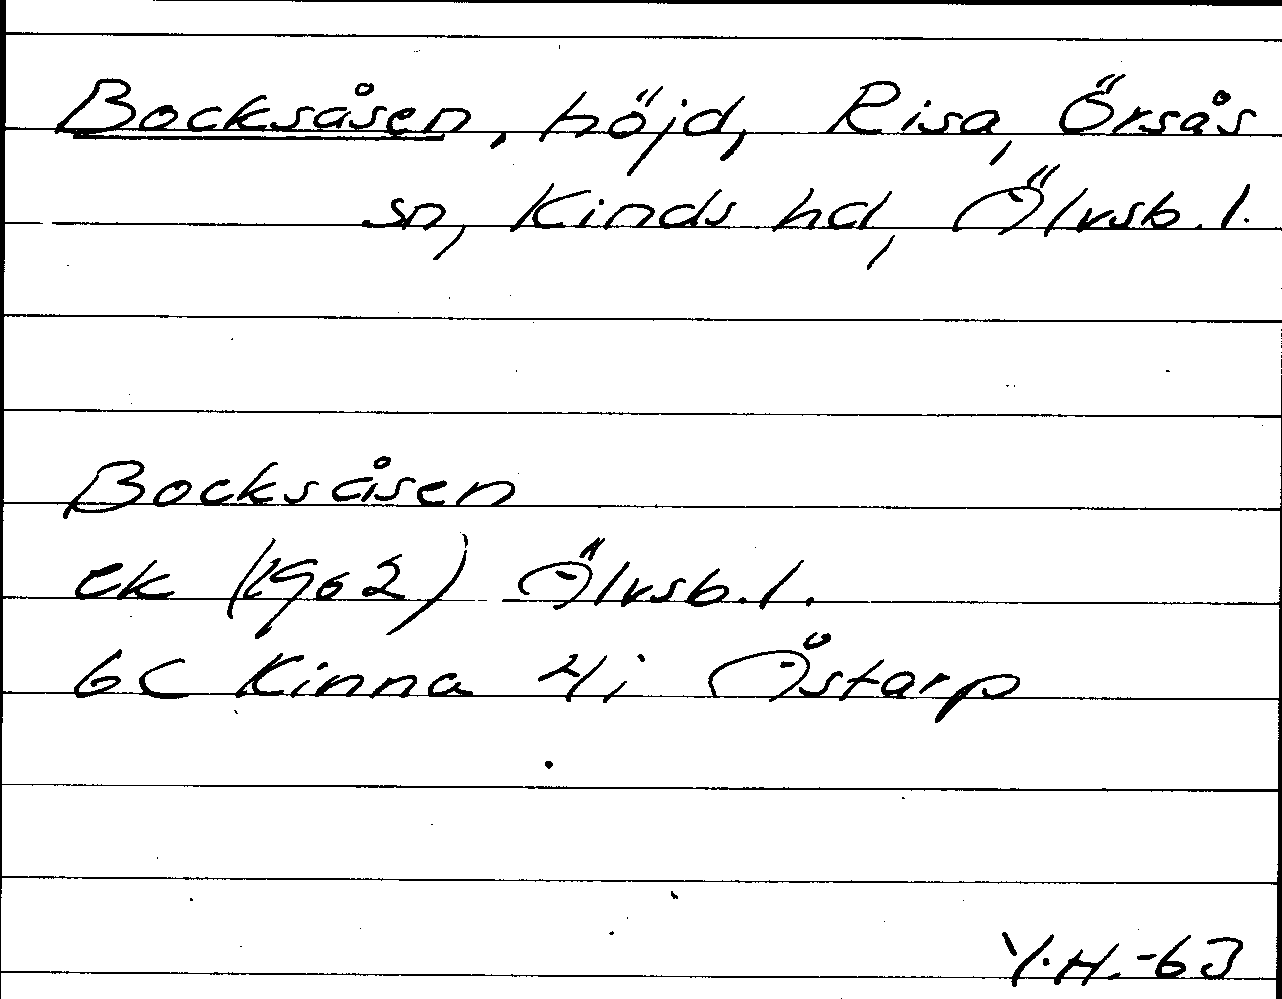 Bocksåsen, höjd, Risa, Örsås
sn, Kinds hd, Älvsb. l.
Bocksåsen
ek (1962) Älvsb. l.
6C Kinna 4i Åstarp
Y.H.-63